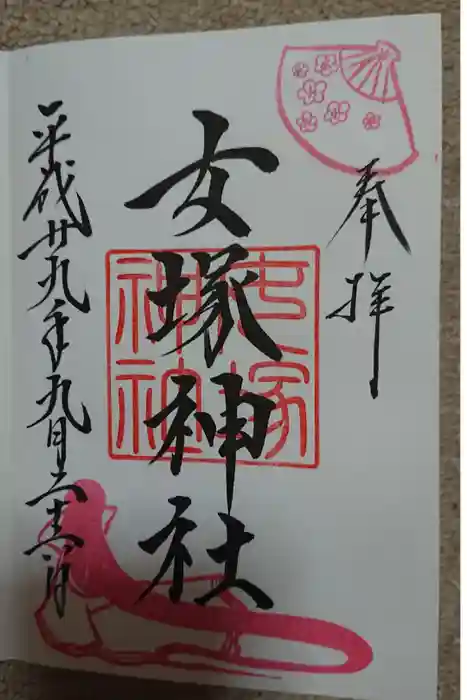 奉拝
女塚神社
女塚神社
平成廿九年九月二十日